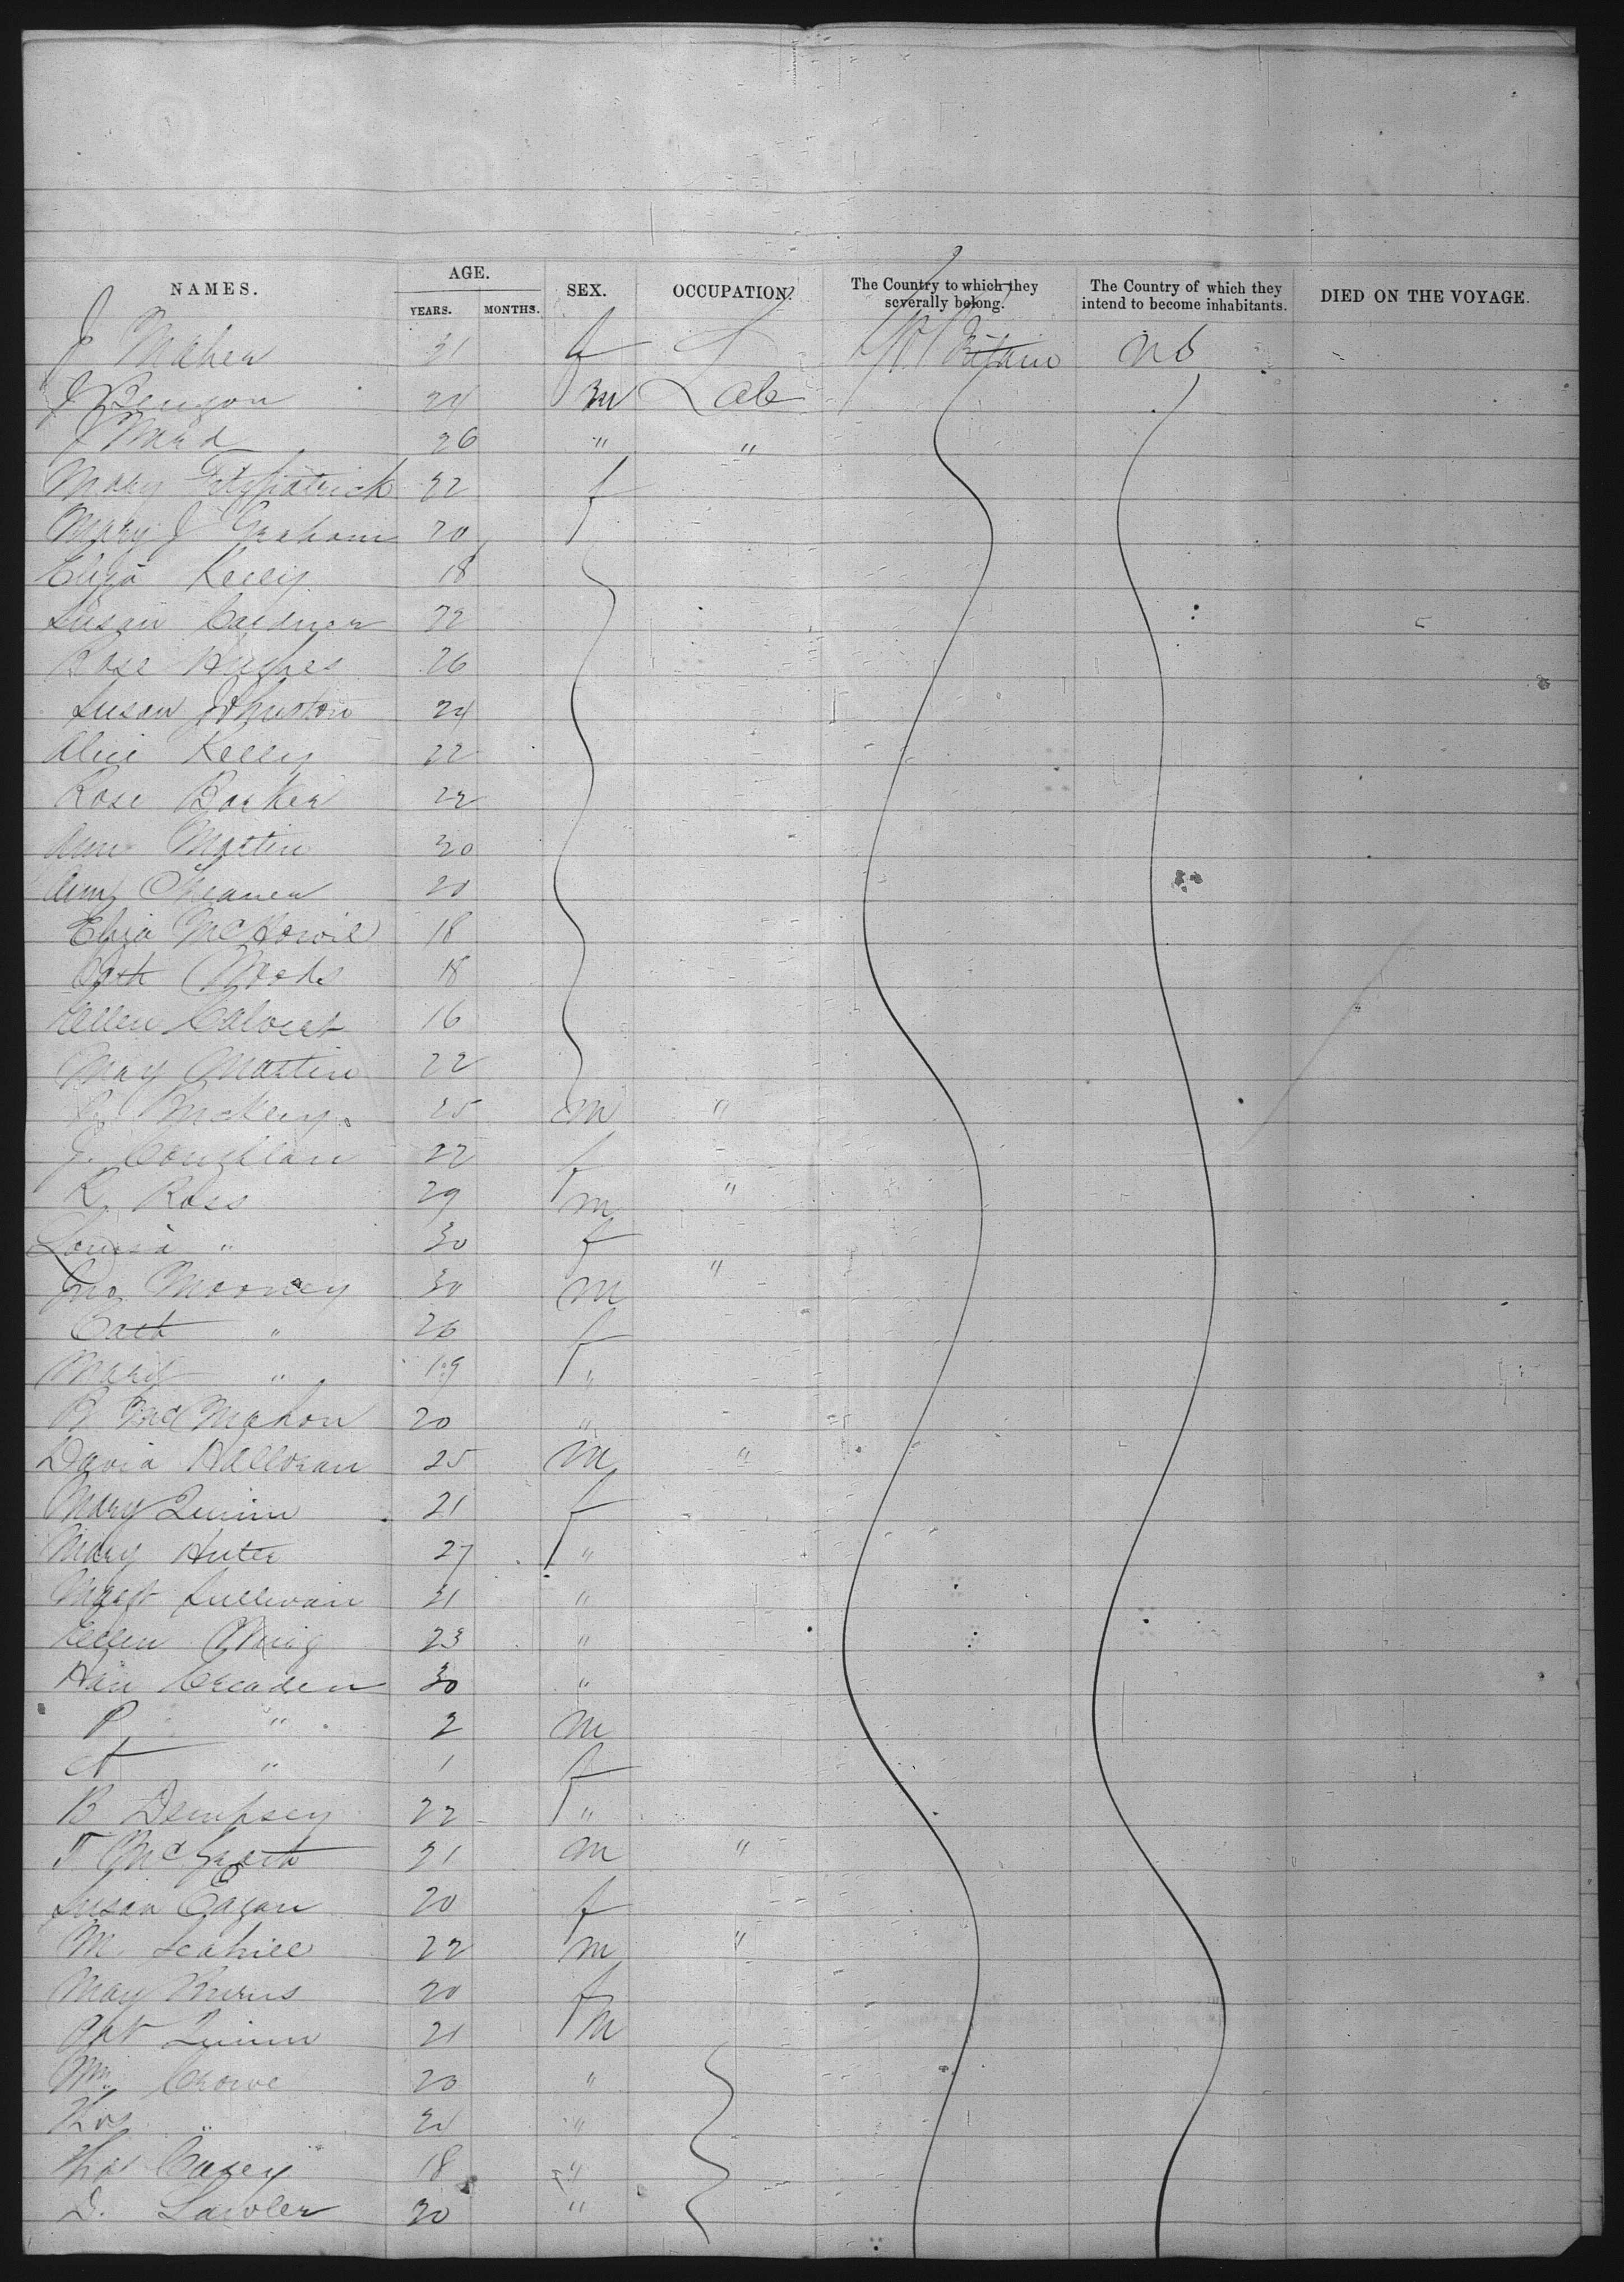 NAMES. AGE. SEX. OCCUPATION. The Country to which they severally belong. The Country of which they intend to become inhabitants. DIED ON THE VOYAGE.
YEARS. MONTHS.
J Maher 31 f Gt Britain US
J 24 m Lab
J Ward 26 " "
Mary Fitzpatrick 22 f
Mary J Graham 20
Eliza Kelly 18
Susan Cardner 22
Rose Hughes 26
Susan Johnston 24
Alice Kelly 22
Rose Barker 22
Ann Martin 20
Ann 20
Eliza 18
Cath Woods 18
Ellen Calvert 16
May Martin 22
25 m "
J. Coughlan 22 f
R Ross 29 m "
Louisa " 30 f
Jno Mooney 30 m "
Cath " 26 f
Margt " 19 "
B McMahon 20 "
David Halloran 25 m "
Mary Quinn 21 f
Mary 27 "
Margt Sullivan 21 "
Ellen 23 "
Creaden 30 "
P " 2 m
A " 1 f
B Dempsey 22 "
T McGrath 21 m "
Susan Eagan 20 f
M. Scahill 22 m "
May Burns 20 f
Pat Quinn 21 m
Wm Crowe 20 "
Thos " "
Thos Casey 18 "
D. Lawler 20 "